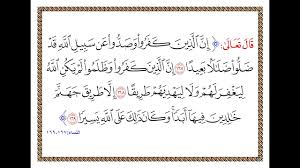 قَالَ تَعَالَى: ﴿ إِنَّ ٱلَّذِينَ كَفَرُواْ وَصَدُّواْ عَن سَبِيلِ ٱللَّهِ قَدۡ
ضَلُّواْ ضَلَٰلَۢا بَعِيدًا ١٦٧ إِنَّ ٱلَّذِينَ كَفَرُواْ وَظَلَمُواْ لَمۡ يَكُنِ ٱللَّهُ
لِيَغۡفِرَ لَهُمۡ وَلَا لِيَهۡدِيَهُمۡ طَرِيقًا ١٦٨ إِلَّا طَرِيقَ جَهَنَّمَ
خَٰلِدِينَ فِيهَآ أَبَدٗاۚ وَكَانَ ذَٰلِكَ عَلَى ٱللَّهِ يَسِيرٗا ١٦٩ ﴾
النساء: ١٦٧، ١٦٩